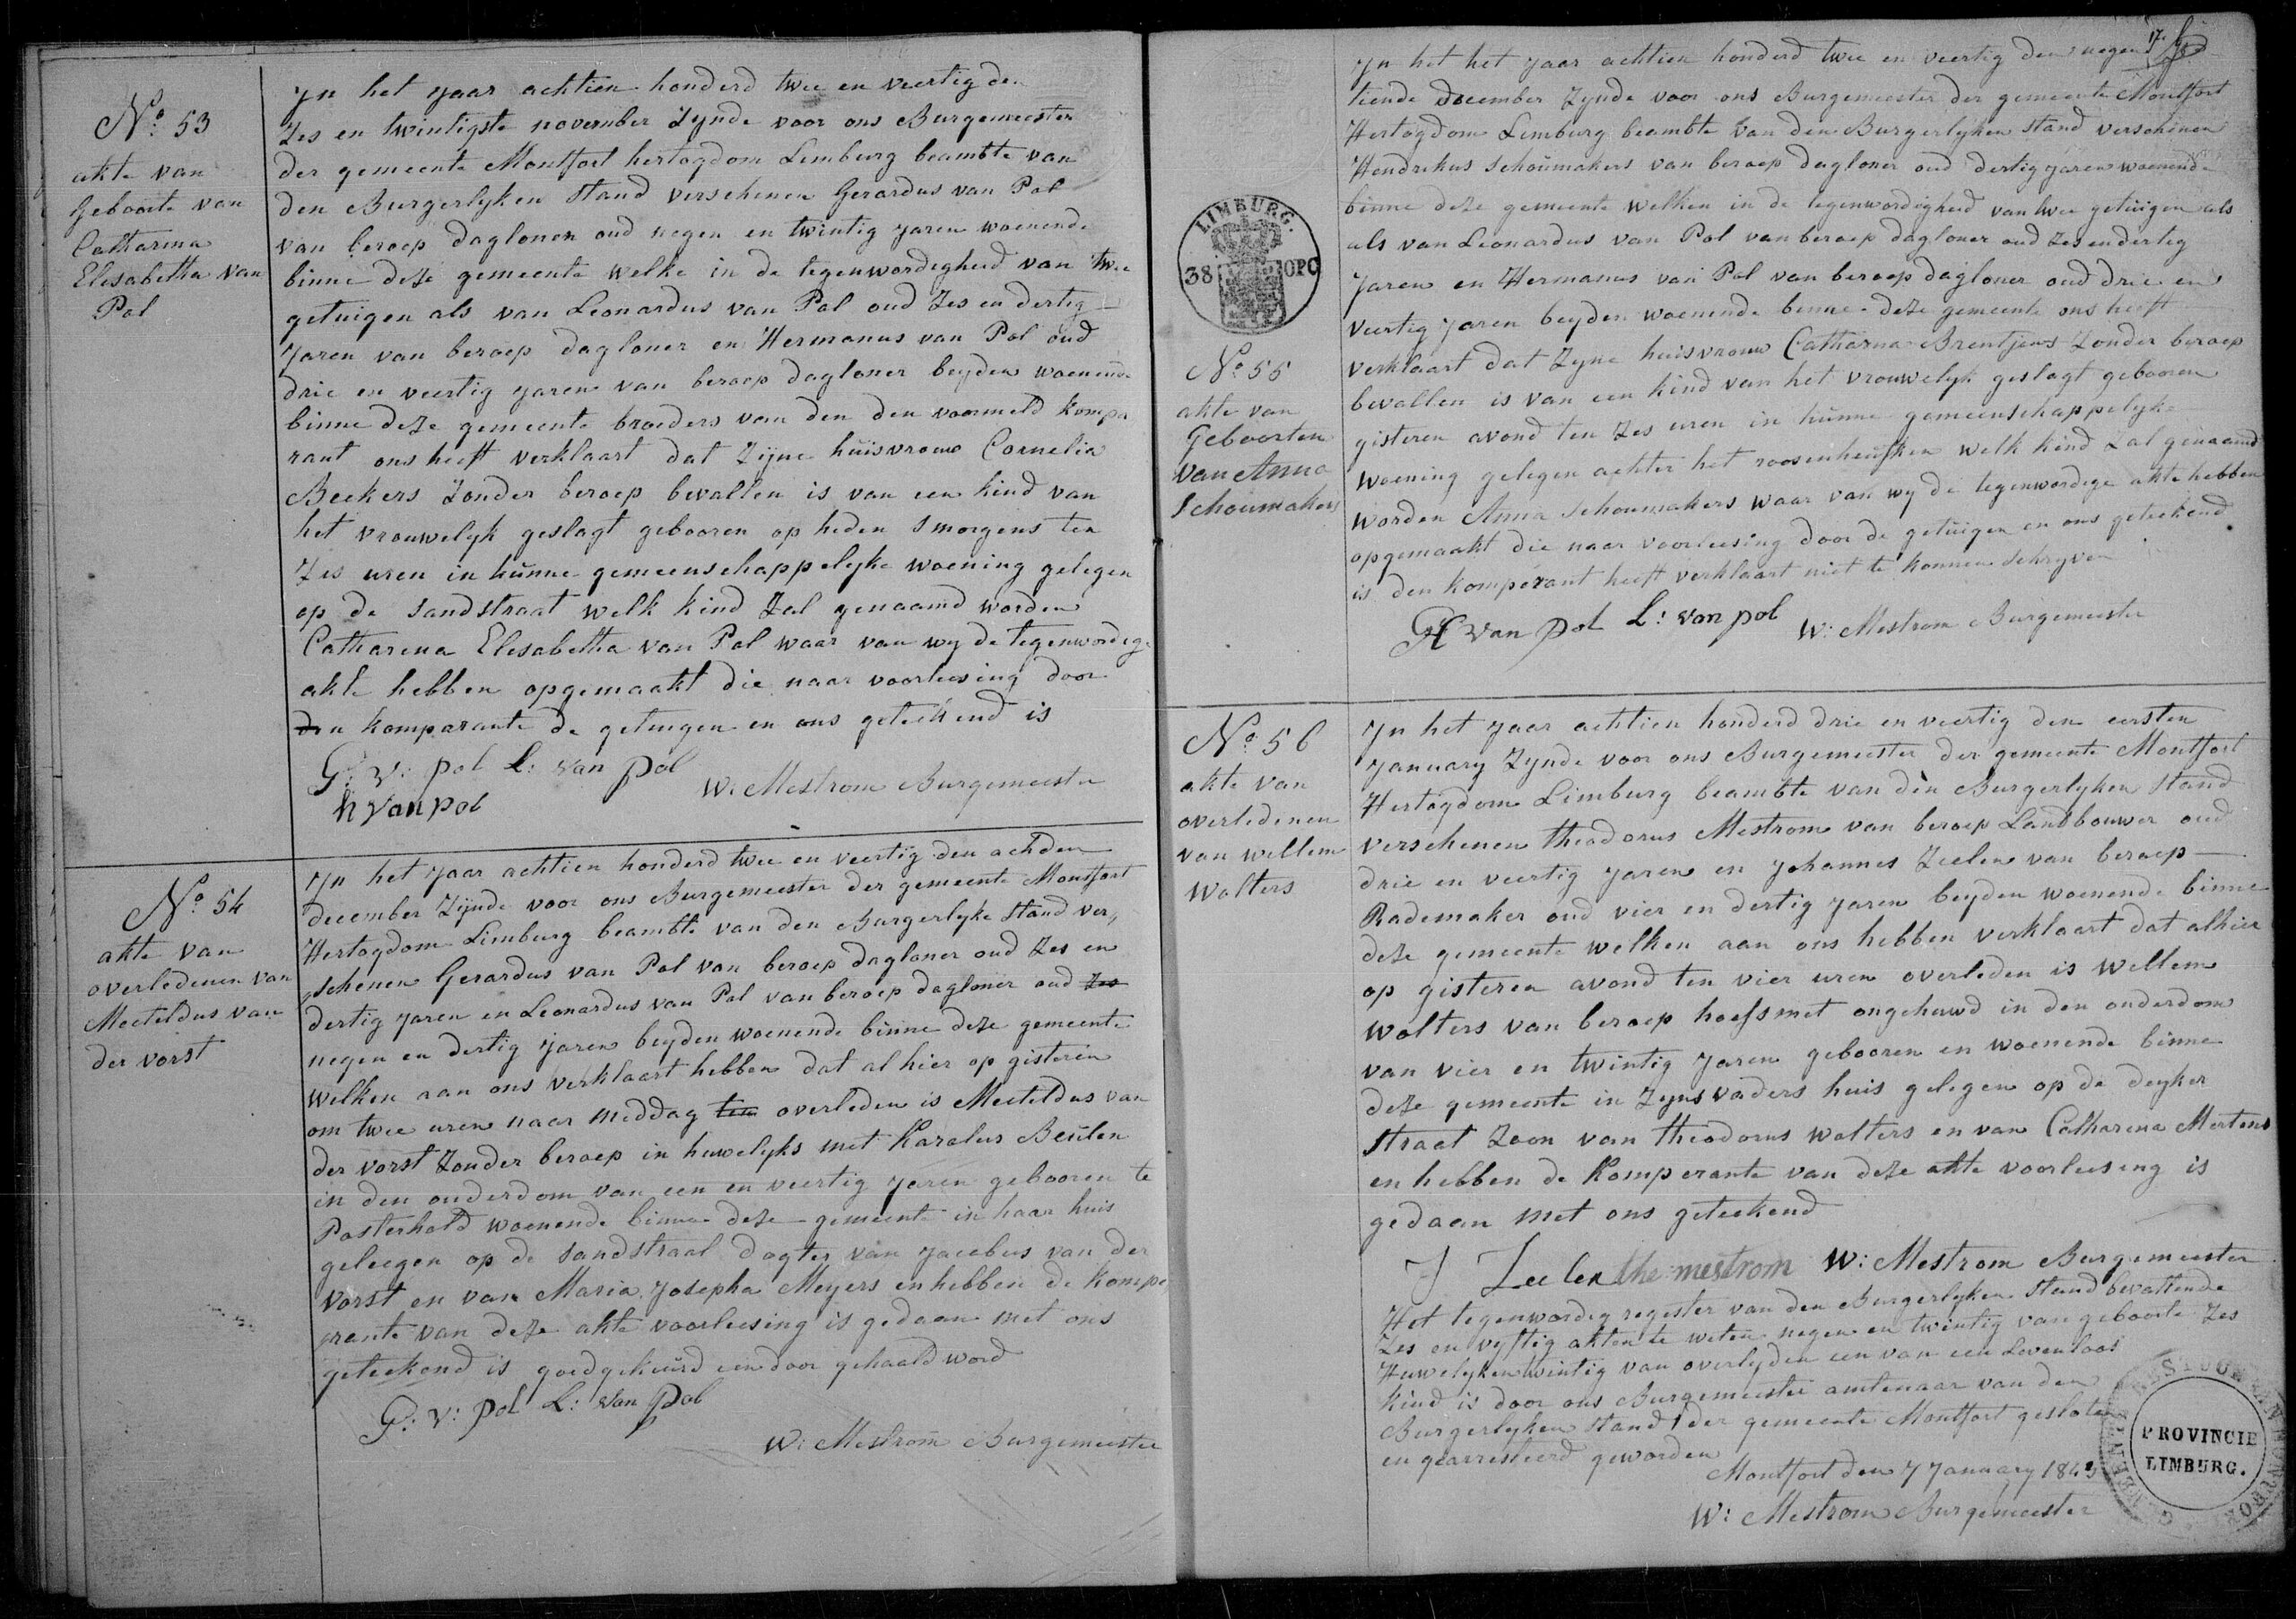 No: 53
akte van
Geboorte van
Catharina
Elisabetha van
Pol
Jn het jaar achtien honderd twee en veertig den
Zes en twintigste november Zynde voor ons Burgemeester
der gemeente Montfort hertogdom Limburg beambte van
den Burgerlyken Stand verschenen Gerardus van Pol
van beroep dagloner oud negen en twintig jaren woenende
binne deze gemeente welke in de tegenwordigheid van twee
getuigen als van Leonardus van Pol oud Zes en dertig
Jaren van beroep dagloner en Hermanus van Pol oud
drie en veertig jaren van beroep dagloner beyden woenende
binne deze gemeente broeders van den den voormeld kompa
rant ons heeft verklaart dat Zijne huisvrouw Cornelia
Beekers Zonder beroep bevallen is van een kind van
het vrouwelyk geslagt gebooren op heden smorgens ten
Zes uren in hunne gemeenschappelyke woening gelegen
op de sandstraat welk kind Zal genaamd worden
Catharina Elisabetha van Pol waar van wy de tegenwordige
akte hebben opgemaakt die naar voorleesing door
den komparante de getuigen en ons geteekend is
G: v: pol L: van pol
h van pol
W: Mestrom Burgemeester
No: 54
akte van
overledenen van
Mecteldus van
der vorst
Jn het jaar achtien honderd twee en veertig den achden
december Zijnde voor ons Burgemeester der gemeente Montfort
Hertogdom Limburg beambte van den Burgerlyke stand ver,,
,,schenen Gerardus van Pol van beroep dagloner oud Zes en
dertig jaren en Leonardus van Pol van beroep dagloner oud Zes
negen en dertig jaren beyden woenende binne deze gemeente
welken aan ons verklaart hebben dat al hier op gisteren
om twee uren naar middag ten overleden is Mecteldus van
der vorst Zonder beroep in huwelyks met Karolus Beulen
in den ouderdom van een en veertig jaren gebooren te
Posterhold woenende binne deze gemeente in haar huis
geleegen op de sandstraat dogter van Jacobus van der
vorst en van Maria Josepha Meyers en hebben de kompe
rante van deze akte voorleesing is gedaan met ons
geteekend is goedgekeurd een door gehaald word
G: v: pol L: van pol
W: Mestrom Burgemeester
17.
LIMBURG.
38 OPC
No: 55
akte van
Geboorten
van Anna
Schoumakers
Jn het het jaar achtien honderd twee en veertig den negen
tiende december Zynde voor ons Burgemeester der gemeente Montfort
Hertogdom Limburg beambte van den Burgerlyken stand verschenen
Hendrikus Schoumakers van beroep dagloner oud dertig jaren woenende
binne deze gemeente welken in de tegenwordigheid van twee getuigen als
als van Leonardus van Pol van beroep dagloner oud Zes en dertig
Jaren en Hermanus van Pol van beroep dagloner oud drie en
veertig jaren beyden woenende binne deze gemeente ons heeft
verklaart dat Zyne huisvrouw Catharina Brentjens Zonder beroep
bevallen is van een kind van het vrouwelyk geslagt gebooren
gisteren avond ten Zes uren in hunne gemeenschappelyke
woening gelegen achter het roosenheusken welk kind Zal genaamd
worden Anna Schoumakers waar van wy de tegenwordige akte hebben
opgemaakt die naar voorleesing door de getuigen en ons geteekend
is den komperant heeft verklaart niet te konnen schryven
H van pol L: van pol W: Mestrom Burgemeester
No: 56
akte van
overledenen
van willem
Wolters
Jn het jaar achtien honderd drie en veertig den eersten
January Zynde voor ons Burgemeester der gemeente Montfort
Hertogdom Limburg beambte van den Burgerlyken stand
verschenen theodorus Mestrom van beroep Landbouwer oud
drie en veertig jaren en Johannes Zeelen van beroep
Rademaker oud vier en dertig jaren beyden woenende binne
deze gemeente welken aan ons hebben verklaart dat alhier
op gisteren avond ten vier uren overleden is willem
wolters van beroep hoefsmet ongehuwd in den ouderdom
van vier en twintig jaren gebooren en woenende binne
deze gemeente in Zyns vaders huis gelegen op de deyker
straat Zoon van theodorus wolters en van Catharina Mertens
en hebben de Komperante van deze akte voorleesing is
gedaan met ons geteekend
J Zeelen the mestrom W: Mestrom Burgemeester
Het tegenwordig register van den Burgerlyken stand bevattende
Zes en vyftig akten te weten negen en twintig van geboorte Zes
Huwelyken twintig van overlyden een van een Levenloos
kind is door ons Burgemeester amtenaar van den
Burgerlyken stand der gemeente Montfort gesloten
en gearresteerd geworden
Montfort den 7 January 1843
W: Mestrom Burgemeester
PROVINCIE
LIMBURG.